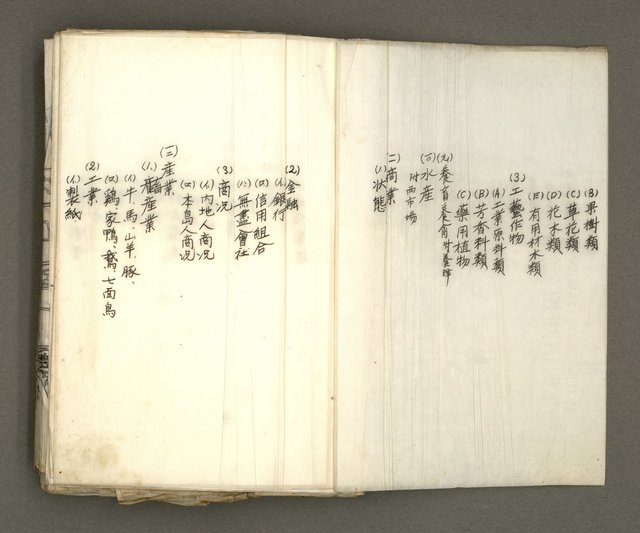 (B) 果樹類
(C) 草花類
(D) 花木類
(E) 有用材木類
(3) 工藝作物
(A) 工業原料類
(B) 芳香料類
(C) 藥用植物
養畜 養禽 附養蜂
水産
附 両市場
二 商業
(1) 状態
(2) 金融
(イ) 銀行
(ロ) 信用組合
(ハ) 無盡會社
(3) 商況
(イ) 内地人商況
(ロ) 本島人商況
(三) 産業
(1) 産業
(イ) 牛、馬、山羊、豚、
(ロ) 鶏、家鴨、鵞、七面鳥
(2) 工業
(イ) 製紙